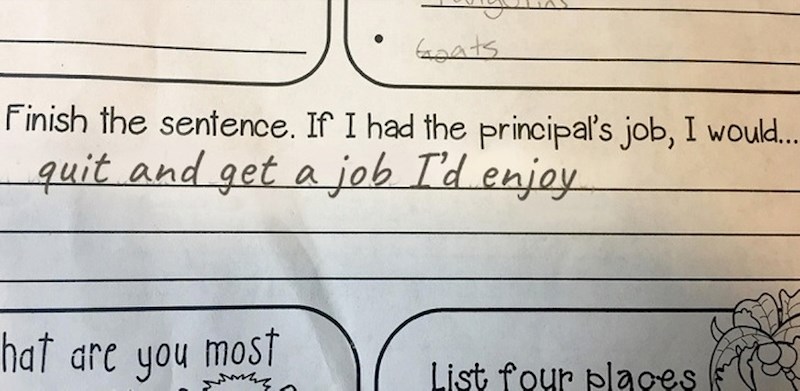 Goats
Finish the sentence. If I had the principal's job, I would...
quit and get a job I'd enjoy
hat are you most
List four places